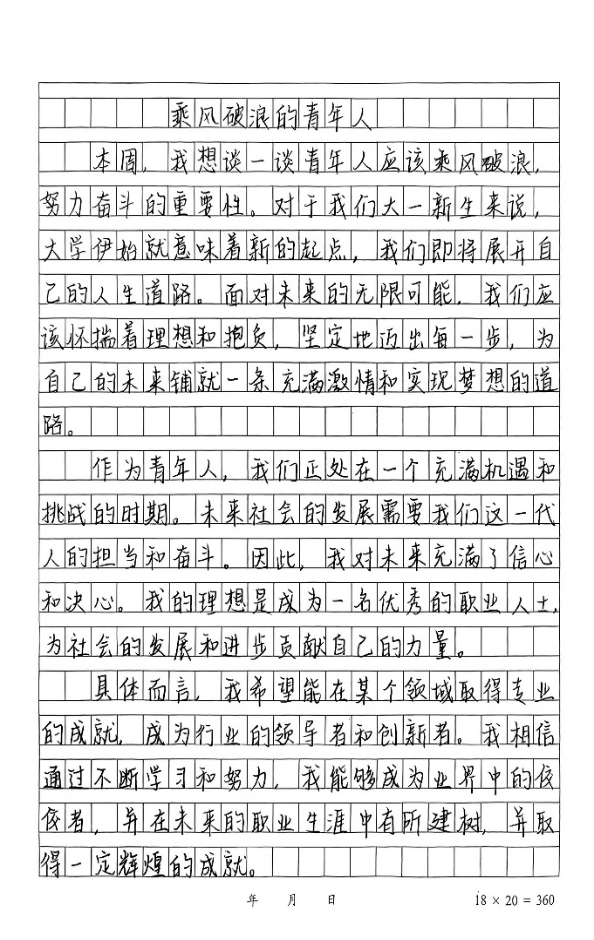 乘风破浪的青年人
本周，我想谈一谈青年人应该乘风破浪，
努力奋斗的重要性。对于我们大一新生来说，
大学伊始就意味着新的起点，我们即将展开自
己的人生道路。面对未来的无限可能，我们应
该怀揣着理想和抱负，坚定地迈出每一步，为
自己的未来铺就一条充满激情和实现梦想的道
路。
作为青年人，我们正处在一个充满机遇和
挑战的时期。未来社会的发展需要我们这一代
人的担当和奋斗。因此，我对未来充满了信心
和决心。我的理想是成为一名优秀的职业人士，
为社会的发展和进步贡献自己的力量。
具体而言，我希望能在某个领域取得专业
的成就，成为行业的领导者和创新者。我相信
通过不断学习和努力，我能够成为业界中的佼
佼者，并在未来的职业生涯中有所建树，并取
得一定辉煌的成就。
年 月 日 18×20=360